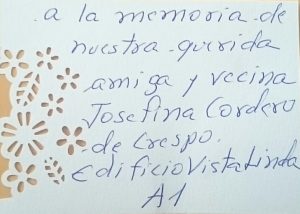 a la memoria de
nuestra querida
amiga y vecina
Josefina Cordero
de Crespo.
Edificio Vista Linda
A1